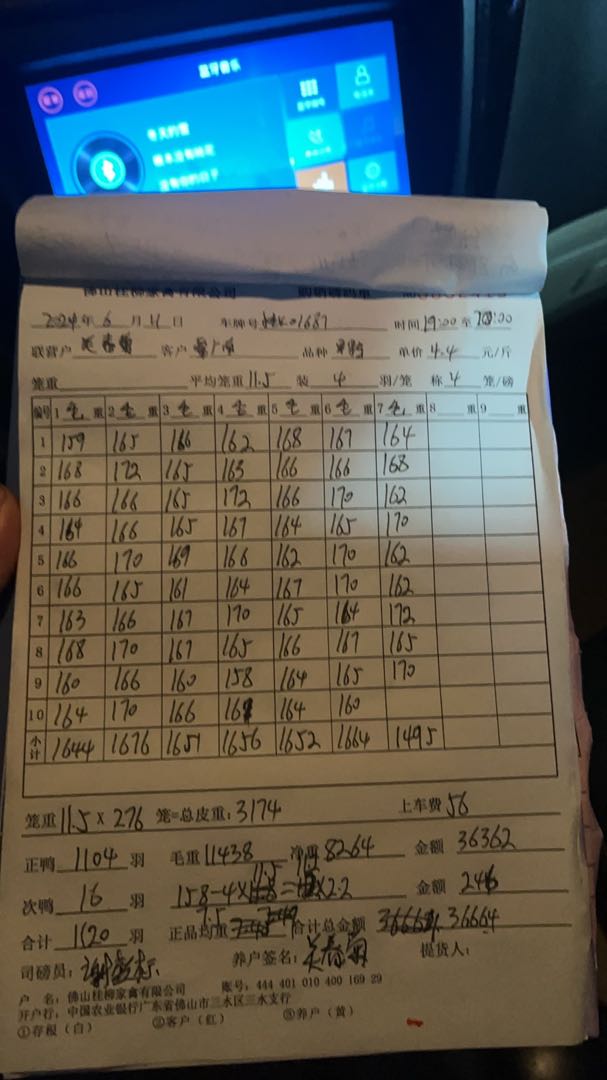 蓝牙音乐
冬天的雪
佛山桂柳家禽有限公司 购销磅码单
2024年6月11日 车牌号 01687 时间19:00至
联营户 客户 品种 单价4.4元/斤
笼重 平均笼重11.5 装4羽/笼 称4笼/磅
编号 1毛重 2毛重 3毛重 4毛重 5毛重 6毛重 7毛重 8 重 9 重
1 159 165 166 162 168 167 164
2 168 172 165 163 166 166 168
3 166 166 165 172 166 170 162
4 164 166 165 167 164 165 170
5 166 170 169 166 162 170 162
6 166 165 161 164 167 170 162
7 163 166 167 170 165 164 172
8 168 170 167 165 166 167 165
9 160 166 160 158 164 165 170
10 164 170 166 164 160
小计 1644 1676 1651 1656 1652 1664 1495
笼重11.5×276笼=总皮重:3174 上车费56
正鸭1104羽 毛重11438 净重8264 金额36362
次鸭16羽 158-4×11.5= ×2.2 金额246
合计1120羽 正品均重7.5 合计总金额 36664
司磅员: 养户签名: 提货人:
户 名:佛山桂柳家禽有限公司 账号:444 401 010 400 169 29
开户行:中国农业银行广东省佛山市三水区三水支行
①存根(白) ②客户(红) ③养户(黄)